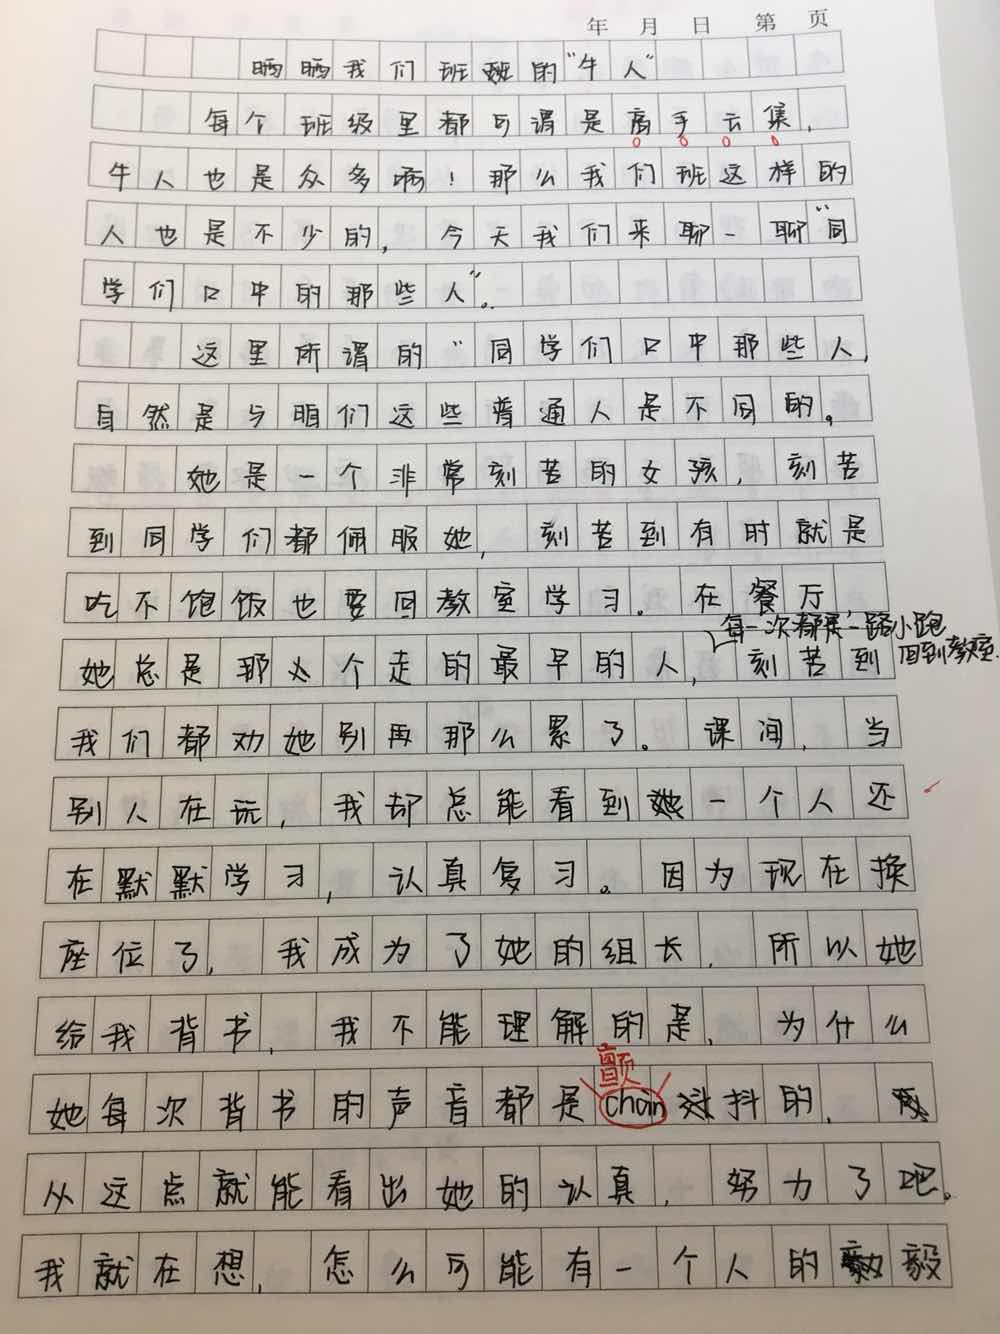 年 月 日 第 页
晒晒我们班的“牛人”
每个班级里都可谓是高手云集，
牛人也是众多啊！那么我们班这样的
人也是不少的，今天我们来聊一聊“同
学们口中的那些人”。
这里所谓的“同学们口中那些人，
自然是与咱们这些普通人是不同的。
她是一个非常刻苦的女孩，刻苦
到同学们都佩服她，刻苦到有时就是
吃不饱饭也要回教室学习。在餐厅，
每一次都是一路小跑
回到教室.
她总是那么个走的最早的人，刻苦到
我们都劝她别再那么累了。课间，当
别人在玩，我却总能看到她一个人还
在默默学习，认真复习。因为现在换
座位了，我成为了她的组长，所以她
给我背书，我不能理解的是，为什么
颤
她每次背书的声音都是chan抖的，
从这点就能看出她的认真，努力了吧。
我就在想，怎么可能有一个人的毅